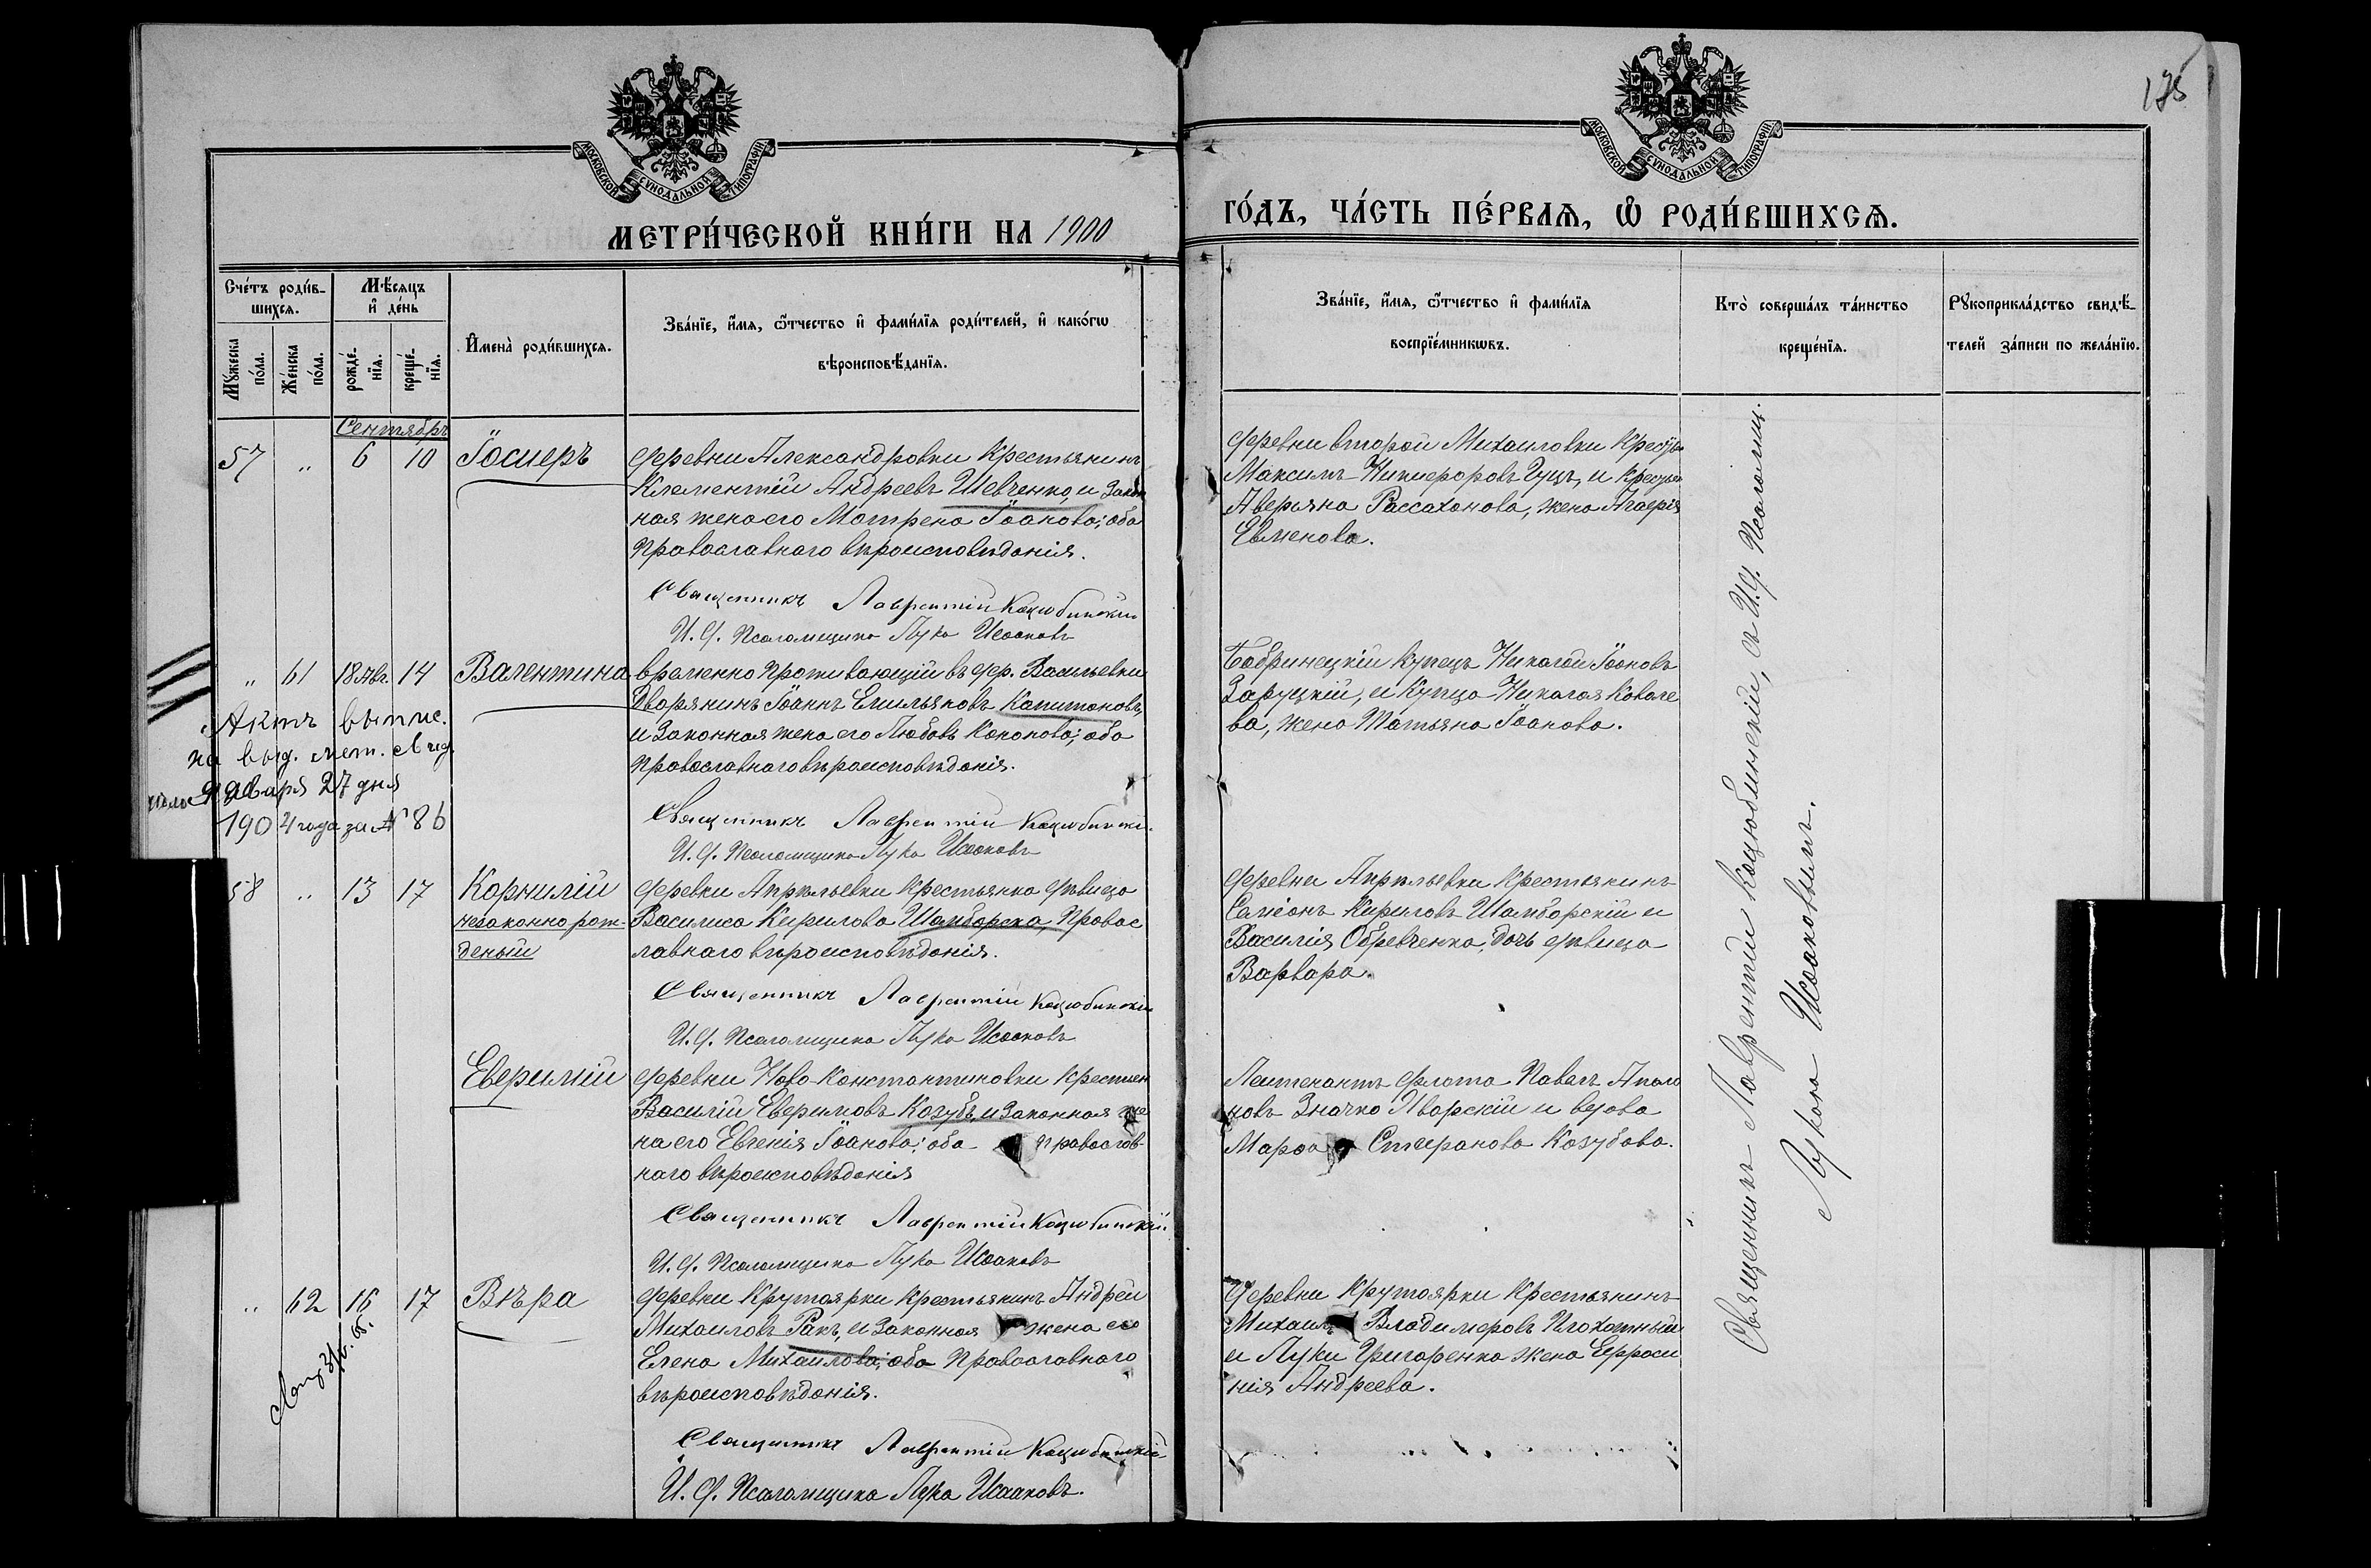 175
МОСКОВСКОЙ СѴНОДАЛЬНОЙ ТИПОГРАФІИ
МОСКОВСКОЙ СѴНОДАЛЬНОЙ ТИПОГРАФІИ
МЕТРИ́ЧЕСКОЙ КНИ́ГИ НА 1900
ГО́ДЪ, ЧА́СТЬ ПЕ́РВАѦ, Ѽ РОДИ́ВШИХСѦ.
Сче́тъ роди́в-
шихся.
Мꙋ́жеска
по́ла.
Же́нска
по́ла.
Мѣ́сяцъ
и҆ де́нь
рожде́-
нїя.
креще́-
нїя.
И҆мена̀ роди́вшихся.
Зва́нїе, и҆́мя, ѻ҆́тчество и҆ фами́лїя роди́телей, и҆ како́гѡ
вѣроисповѣ́данїя.
Зва́нїе, и҆́мя, ѻ҆́тчество и҆ фами́лїя
воспрїе́мникѡвъ.
Кто̀ соверша́лъ та́инство
креще́нїя.
Рꙋкоприкла́дство свидѣ́-
телей за́писи по жела́нїю.
Сентябрь
57 „ 6 10 Іосифъ
деревни Александровки крестьянинъ
Климентій Андреевъ Шевченко, и закон
ная жена его Матрена Іоанова; оба
православнаго вѣроисповѣданія.
Священникъ Лаврентій Коцюбинскій
И. д. Псаломщика Лука Исааковъ
деревни второй Михаиловки крест
Максимъ Никифоровъ Гуцъ, и крест
Аверьяна Рассаханова, жена Агафія
Евменова.
„ 61 18 Авг. 14 Валентина
временно проживающій въ дер. Васильевки
Дворянинъ Іоаннъ Емильяновъ Капитановъ,
и законная жена его Любовь Кононова; оба
православнаго вѣроисповѣданія.
Священникъ Лаврентій Коцюбинскій
И. д. Псаломщика Лука Исааковъ
Бобринецкій купецъ Николай Іоановъ
Заруцкій, и купца Николая Ковале
ва, жена Татьяна Іоанова.
Актъ выпис.
на выд. мет.
января 27 дня
1904 года за № 86
58 „ 13 17 Корнилій
незаконно рож-
деный
деревни Апрѣльевки крестьянка дѣвица
Василиса Кирилова Шамборска, Правос
лавнаго вѣроисповѣданія.
Священникъ Лаврентій Коцюбинскій
И. д. Псаломщика Лука Исааковъ
деревни Апрѣльевки крестьянинъ
Симеонъ Кириловъ Шамборскій и
Василія Обревченка, дочь дѣвица
Варвара.
Евфимій
деревни Ново-Константиновки крестьян
Василій Евфимовъ Козубъ, и законная же
на его Евгенія Іоанова; оба православ-
наго вѣроисповѣданія
Священникъ Лаврентій Коцюбинскій
И. д. Псаломщика Лука Исааковъ
Лейтенантъ флота Павелъ Апало
новъ Значко Яворскій и вдова
Марфа Стефанова Козубова.
„ 62 16 17 Вѣра
деревни Крутоярки крестьянинъ Андрей
Михаиловъ Ракъ, и законная жена его
Елена Михаилова; оба православнаго
вѣроисповѣданія.
Священникъ Лаврентій Коцюбинскій
И. д. Псаломщика Лука Исааковъ.
деревни Крутоярки крестьянинъ
Михаилъ Владимеровъ Плохотный
и Луки Григоренка жена Ефроси
нія Андреева.
Священникъ Лаврентій Коцюбинскій, съ И. д. Псаломщ.
Лукою Исааковымъ.